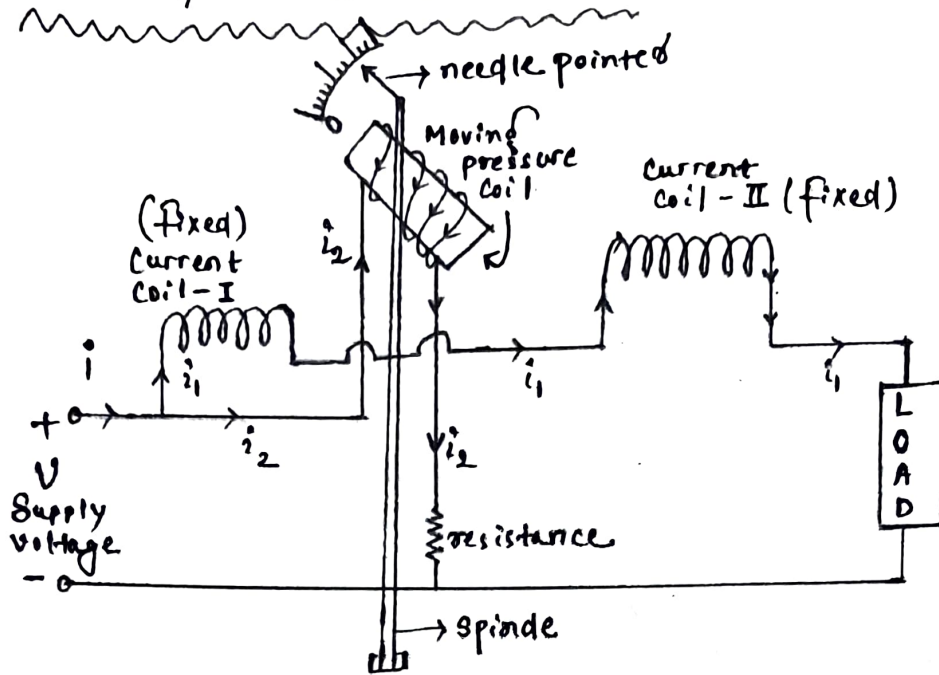 needle pointer
0
Moving
pressure
coil
Current
coil - II (fixed)
(fixed)
Current
coil - I
i2
i
i1
+
i2
i1
i1
V
Supply
voltage
i2
L
O
A
D
resistance
-
spinde